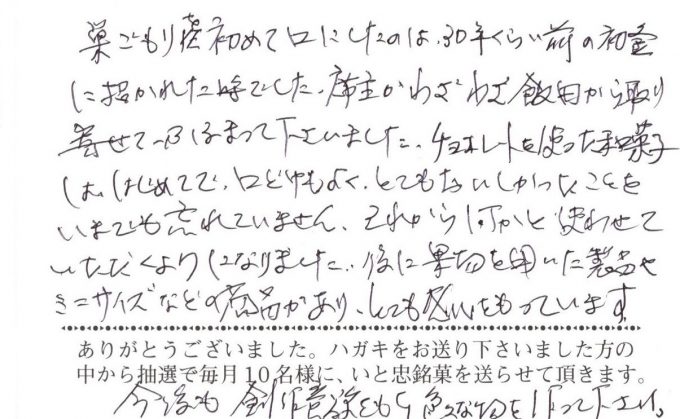 巣ごもり様初めて口にしたのは、30年くらい前の初釜
に招かれた時でした。席主がわざわざ飯田から取り
寄せて下さいました。チョコレートを使った和菓子
ははじめてで、口どけもよく、とてもおいしかったことを
いまでも忘れていません。それから何かと使わせて
いただくようになりました。後に果物を用いた製品や
ミニサイズなどの商品があり、とても をもっています
ありがとうございました。ハガキをお送り下さいました方の
中から抽選で毎月10名様に、いと忠銘菓を送らせて頂きます。
今後も創作意欲をもち色々な物を作って下さい。